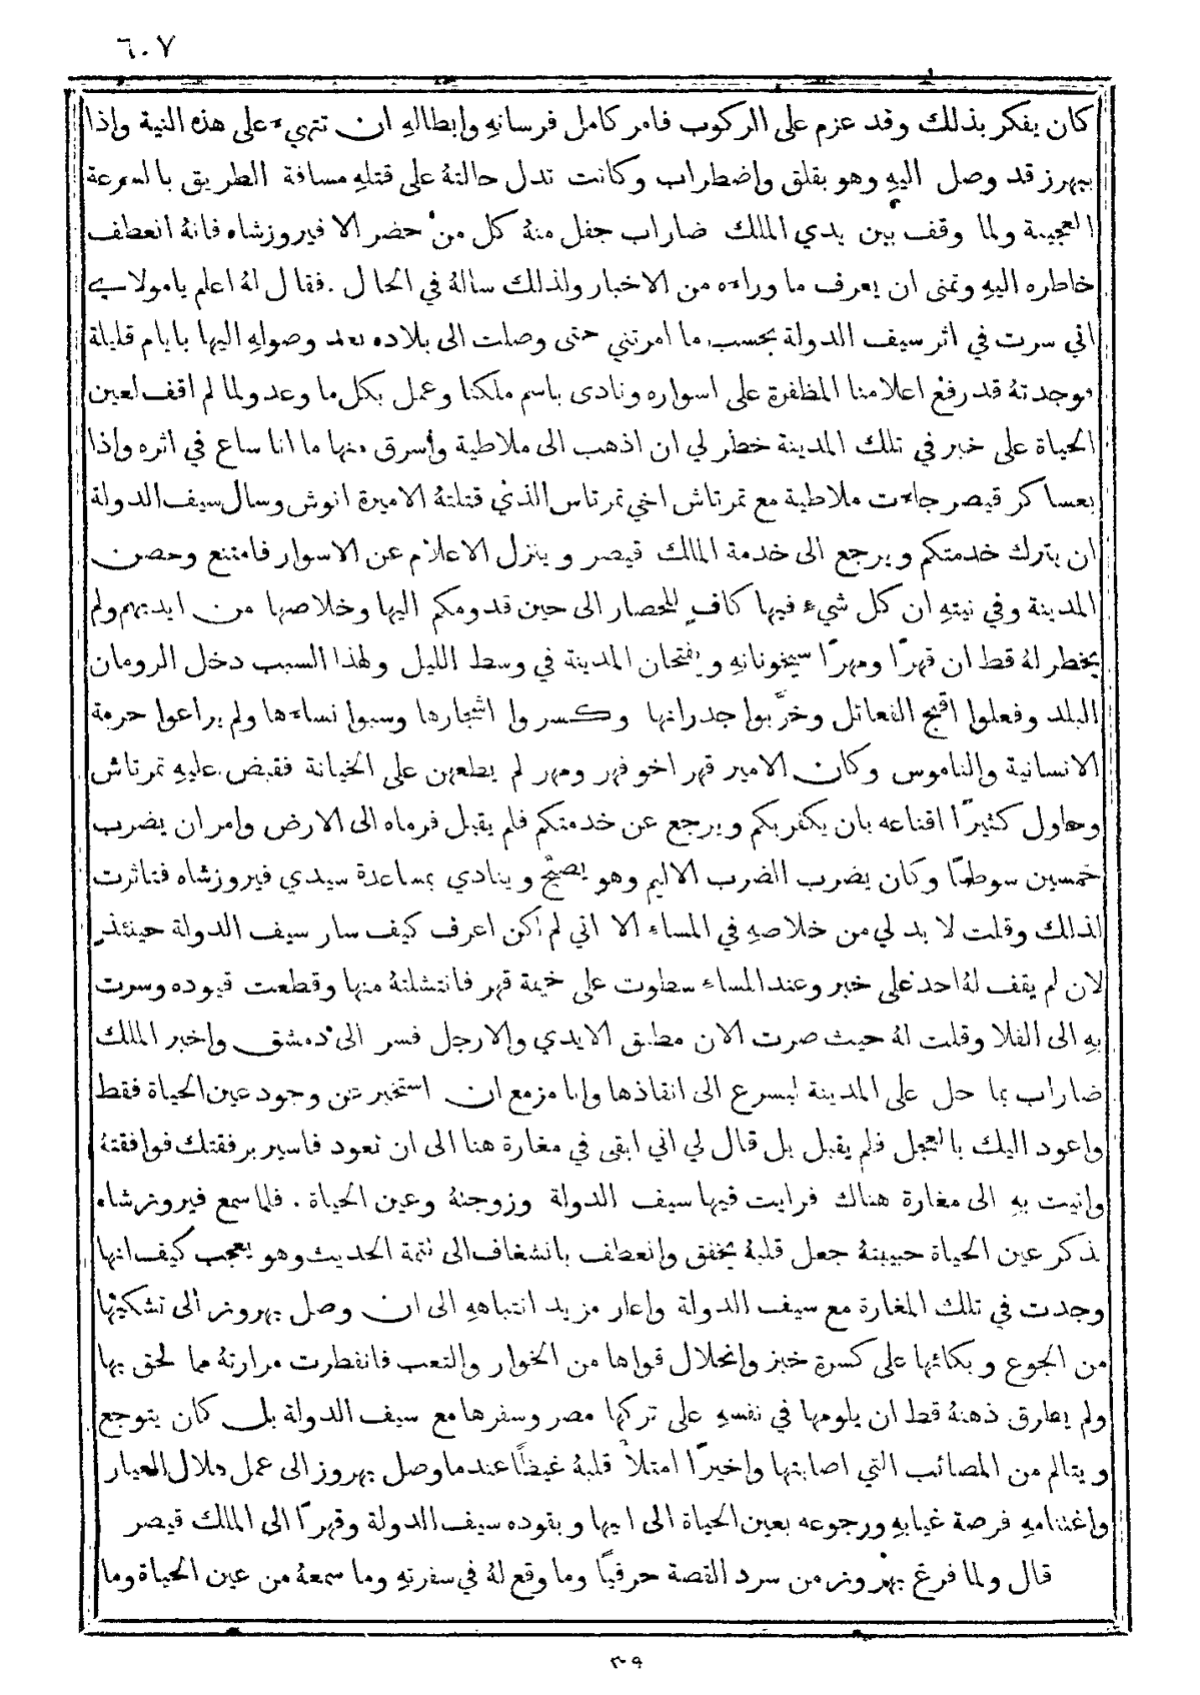 ٦٠٧
كان يفكر بذلك وقد عزم على الركوب فامر كامل فرسانهِ وابطالهِ ان تتهيءَ على هذه النية واذا
ببهرز قد وصل اليهِ وهو بقلق واضطراب وكانت تدل حالتهُ على قتلهِ مسافة الطريق بالسرعة
العجيبة ولما وقف بين يدي الملك ضاراب جفل منهُ كل من حضر الا فيروزشاه فانهُ انعطف
خاطره اليهِ وتمنى ان يعرف ما وراءه من الاخبار ولذلك سالهُ في الحال . فقال لهُ اعلم يامولاي
اني سرت في اثر سيف الدولة بحسب ما امرتني حتى وصلت الى بلاده بعد وصولهِ اليها بايام قليلة
فوجدتهُ قد رفع اعلامنا المظفرة على اسواره ونادى باسم ملكنا وعمل بكل ما وعد ولما لم اقف لعين
الحياة على خبر في تلك المدينة خطر لي ان اذهب الى ملاطية وأسرق منها ما انا ساع في اثره واذا
بعساكر قيصر جاءت ملاطية مع تمرتاش اخي تمرتاس الذي قتلتهُ الاميرة انوش وسال سيف الدولة
ان يترك خدمتكم ويرجع الى خدمة الملك قيصر وينزل الاعلام عن الاسوار فامتنع وحصن
المدينة وفي نيتهِ ان كل شيءٍ فيها كافٍ للحصار الى حين قدومكم اليها وخلاصها من ايديهم ولم
يخطر لهُ قط ان قهرًا ومهرًا سيخونانهِ ويفتحان المدينة في وسط الليل ولهذا السبب دخل الرومان
البلد وفعلوا اقبح الفعائل وخرَّبوا جدرانها وكسروا اشجارها وسبوا نساءها ولم يراعوا حرمة
الانسانية والناموس وكان الامير قهر اخو فهر ومهر لم يطعهن على الخيانة فقبض عليهِ تمرتاش
وحاول كثيرًا اقناعه بان يكفر بكم ويرجع عن خدمتكم فلم يقبل فرماه الى الارض وامر ان يضرب
خمسين سوطًا وكان يضرب الضرب الاليم وهو يصيح وينادي بمساعدة سيدي فيروزشاه فتاثرت
لذلك وقلت لا بد لي من خلاصهِ في المساءِ الا اني لم اكن اعرف كيف سار سيف الدولة حينئذٍ
لان لم يقف لهُ احد على خبر وعند المساءِ سطوت على خيمة قهر فانتشلتهُ منها وقطعت قيوده وسرت
بهِ الى الفلا وقلت لهُ حيث صرت الان مطلق الايدي والارجل فسر الى دمشق واخبر الملك
ضاراب بما حل على المدينة ليسرع الى انقاذها وانا مزمع ان استخبر عن وجود عين الحياة فقط
واعود اليك بالعجل فلم يقبل بل قال لي اني ابقى في مغارة هنا الى ان تعود فاسير برفقتك فوافقتهُ
واتيت بهِ الى مغارة هناك فرايت فيها سيف الدولة وزوجتهُ وعين الحياة . فلما سمع فيروزشاه
بذكر عين الحياة حبيبتهُ جعل قلبهُ يخفق وانعطف بانشغاف الى تتمة الحديث وهو يعجب كيف انها
وجدت في تلك المغارة مع سيف الدولة واعار مزيد انتباههِ الى ان وصل بهروز الى تشكيها
من الجوع وبكائها على كسرة خبز وانحلال قواها من الخوار والتعب فانفطرت مرارتهُ مما لحق بها
ولم يطرق ذهنهُ قط ان يلومها في نفسهِ على تركها مصر وسفرها مع سيف الدولة بل كان يتوجع
ويتالم من المصائب التي اصابتها واخيرًا امتلأ قلبهُ غيضًا عندما وصل بهروز الى عمل هلال العيار
واغتنامهِ فرصة غيابهِ ورجوعه بعين الحياة الى ابيها وبقوده سيف الدولة وقهرًا الى الملك قيصر
قال ولما فرغ بهروز من سرد القصة حرفيًا وما وقع لهُ في سفرتهِ وما سمعهُ من عين الحياة وما